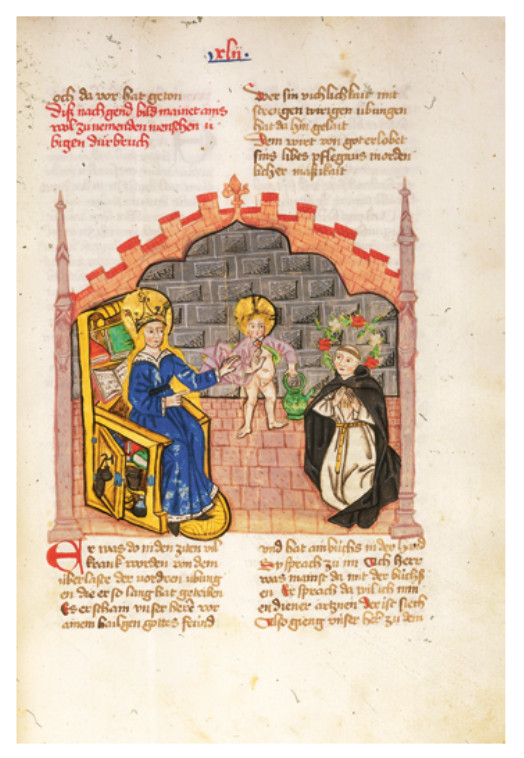 xlii.
och da vor hat geton
Diß nachgend bild mainet ains
wol zu nemenden menschen u
bigen durbruch
Wer sin vichlichkait mit
strengen wirigen ubungen
hat da hin gelait
Dem wirt von got erlobet
sins libes pflegnus morden
licher maßikait
Er was do in den ziten vil
krank worden von dem
uberlaste der vordren ubung
en die er so lang hat getriben
Es erscham unser here vor
ainem hailgen gottes frund
und hat ain buchs in der hand
Sy sprach zu im Ach herr
was mainst du mit der buchs
en Er sprach da wil ich min
en diener artznen der ist siech
Also gieng unser her zu dem